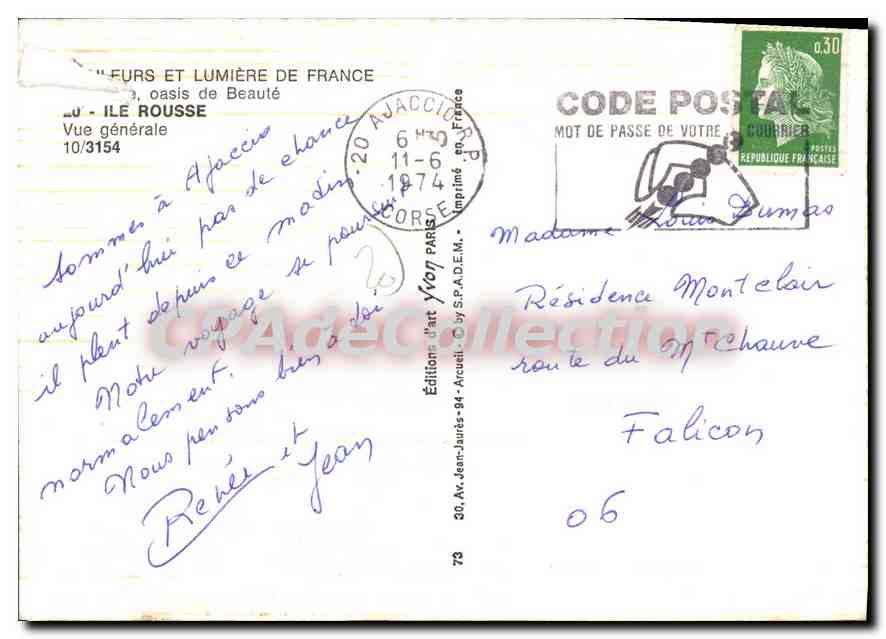 LEURS ET LUMIÈRE DE FRANCE
oasis de Beauté
20 - ILE ROUSSE
Vue générale
10/3154
Sommes à Ajaccio
aujourd'hui pas de chance
il pleut depuis ce matin
Notre voyage se poursuit
normalement.
Nous pensons bien à toi
Renée et
Jean
20
20 AJACCIO R.P
6 H
11-6
1974
CORSE
Éditions d'art Yvon PARIS
30, Av. Jean-Jaurès - 94 - Arcueil - © by S.P.A.D.E.M. - Imprimé en France
73
CODE POSTAL
MOT DE PASSE DE VOTRE COURRIER
0,30
POSTES
REPUBLIQUE FRANÇAISE
Madame Louis Dumas
Résidence Montclair
route du Mt Chauve
Falicon
06
CPAdeCollection